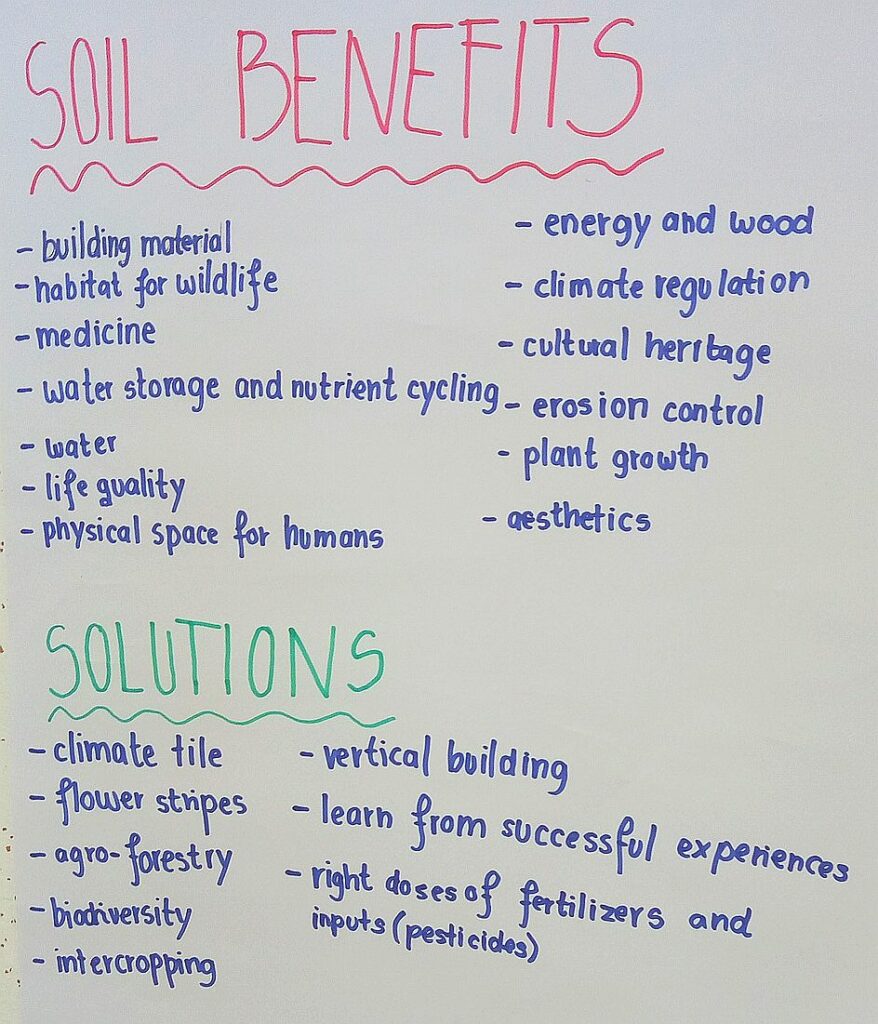 SOIL BENEFITS
- building material
- habitat for wildlife
- medicine
- water storage and nutrient cycling
- water
- life quality
- physical space for humans
- energy and wood
- climate regulation
- cultural heritage
- erosion control
- plant growth
- aesthetics
SOLUTIONS
- climate tile
- flower stripes
- agro-forestry
- biodiversity
- intercropping
- vertical building
- learn from successful experiences
- right doses of fertilizers and
inputs (pesticides)